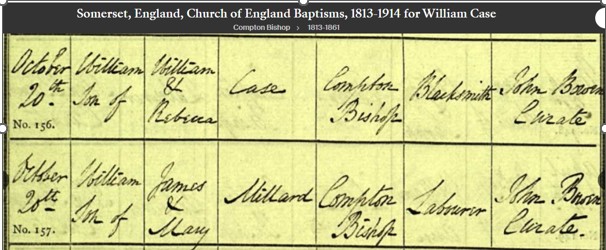 Somerset, England, Church of England Baptisms, 1813-1914 for William Case
Compton Bishop > 1813-1861
October 20.th No. 156. William Son of William & Rebecca Case Compton Bishop Blacksmith John Bowen Curate
October 20th No. 157. William Son of James & Mary Millard Compton Bishop Labourer John Bowen Curate.